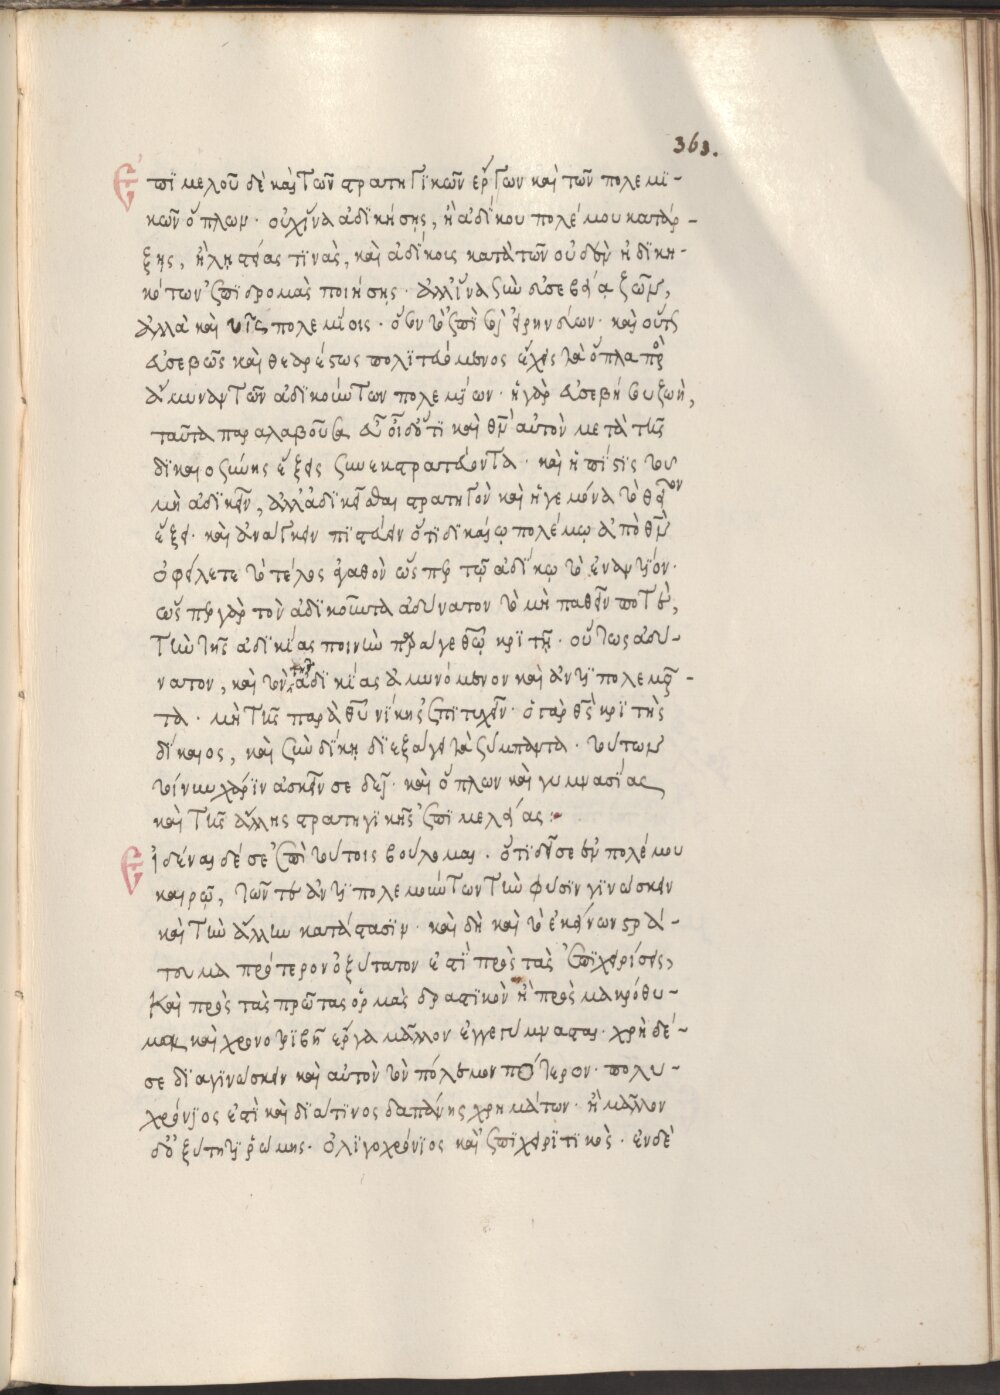 363.
Ἐπιμελοῦ δὲ καὶ τῶν στρατηγικῶν ἔργων καὶ τῶν πολεμι-
κῶν ὅπλων· οὐχ ἵνα ἀδικήσῃς, ἢ ἀδίκου πολέμου κατάρ-
ξῃς, ἢ λῃστείας τινὰς, καὶ ἀδίκοις κατὰ τῶν οὐδὲν ἠδικη-
κότων ἐπιδρομὰς ποιήσῃς· ἀλλ' ἵνα σὺν εὐσεβείᾳ ζῶν,
ἀλλὰ καὶ τοῖς πολεμίοις· καὶ οὕτως
εὐσεβῶς καὶ θεαρέστως πολιτευόμενος ἔχεις τὰ ὅπλα πρὸς
ἄμυναν τῶν ἀδικούντων πολεμίων· ἡ γὰρ εὐσεβής σου ζωὴ,
ταῦτα παραλαβοῦσα εὖ οἶδ' ὅτι καὶ θεὸν αὐτὸν μετὰ τῆς
δικαιοσύνης ἕξεις συνεκστρατεύοντα· καὶ ἡ πίστις τοῦ
μὴ ἀδικεῖν, ἀλλ' ἀδικεῖσθαι στρατηγὸν καὶ ἡγεμόνα τὸ θεῖον
ἕξει· καὶ ἀνάγκη πιστεύειν ὅτι δικαίῳ πολέμῳ ἀπὸ θεοῦ
ὀφείλεται τὸ τέλος ἀγαθὸν ὥσπερ τῷ ἀδίκῳ τὸ ἐναντίον·
ὥσπερ γὰρ τὸν ἀδικοῦντα ἀδύνατον τὸ μὴ παθεῖν ποτὲ,
τὴν τῆς ἀδικίας ποινὴν παρὰ γε θεῷ κριτῇ· οὕτως ἀδύ-
νατον, καὶ τὸν τὴν ἀδικίας ἀμυνόμενον καὶ ἀντιπολεμοῦν-
τα· μὴ τῆς παρὰ θεοῦ νίκης ἐπιτυχεῖν· ὁ γὰρ θεὸς κριτὴς
δίκαιος, καὶ σὺν δίκῃ διεξάγει τὰ σύμπαντα· τούτων
τοίνυν χάριν ἀσκεῖν σε δεῖ· καὶ ὅπλων καὶ γυμνασίας
καὶ τῆς ἄλλης στρατηγικῆς ἐπιμελείας:
Εἰδέναι δέ σε ἐπὶ τούτοις βούλομαι· ὅτι δεῖ σε ἐν πολέμου
καιρῷ, τῶν τε ἀντιπολεμούντων τὴν φύσιν γινώσκειν
καὶ τὴν ἄλλην κατάστασιν· καὶ δὴ καὶ τὸ ἐκείνων στρά-
τευμα πρότερον ὀξύτατον ἐστὶ πρὸς τὰς ἐπιχειρίσεις,
καὶ πρὸς τὰς πρώτας ὁρμὰς δραστικὸν ἢ πρὸς μακρόθυ-
μα καὶ χρονοτριβῆ ἔργα μᾶλλον ἐγγεγύμνασται· χρὴ δέ-
σε διαγινώσκειν καὶ αὐτὸν τὸν πόλεμον πότερον· πολυ-
χρόνιος ἐστὶ καὶ διά τινος δαπάνης χρημάτων· ἢ μᾶλλον
ῥώμης· ὀλιγοχρόνιος καὶ ἐπιχειριτικὸς· ἐνδέ